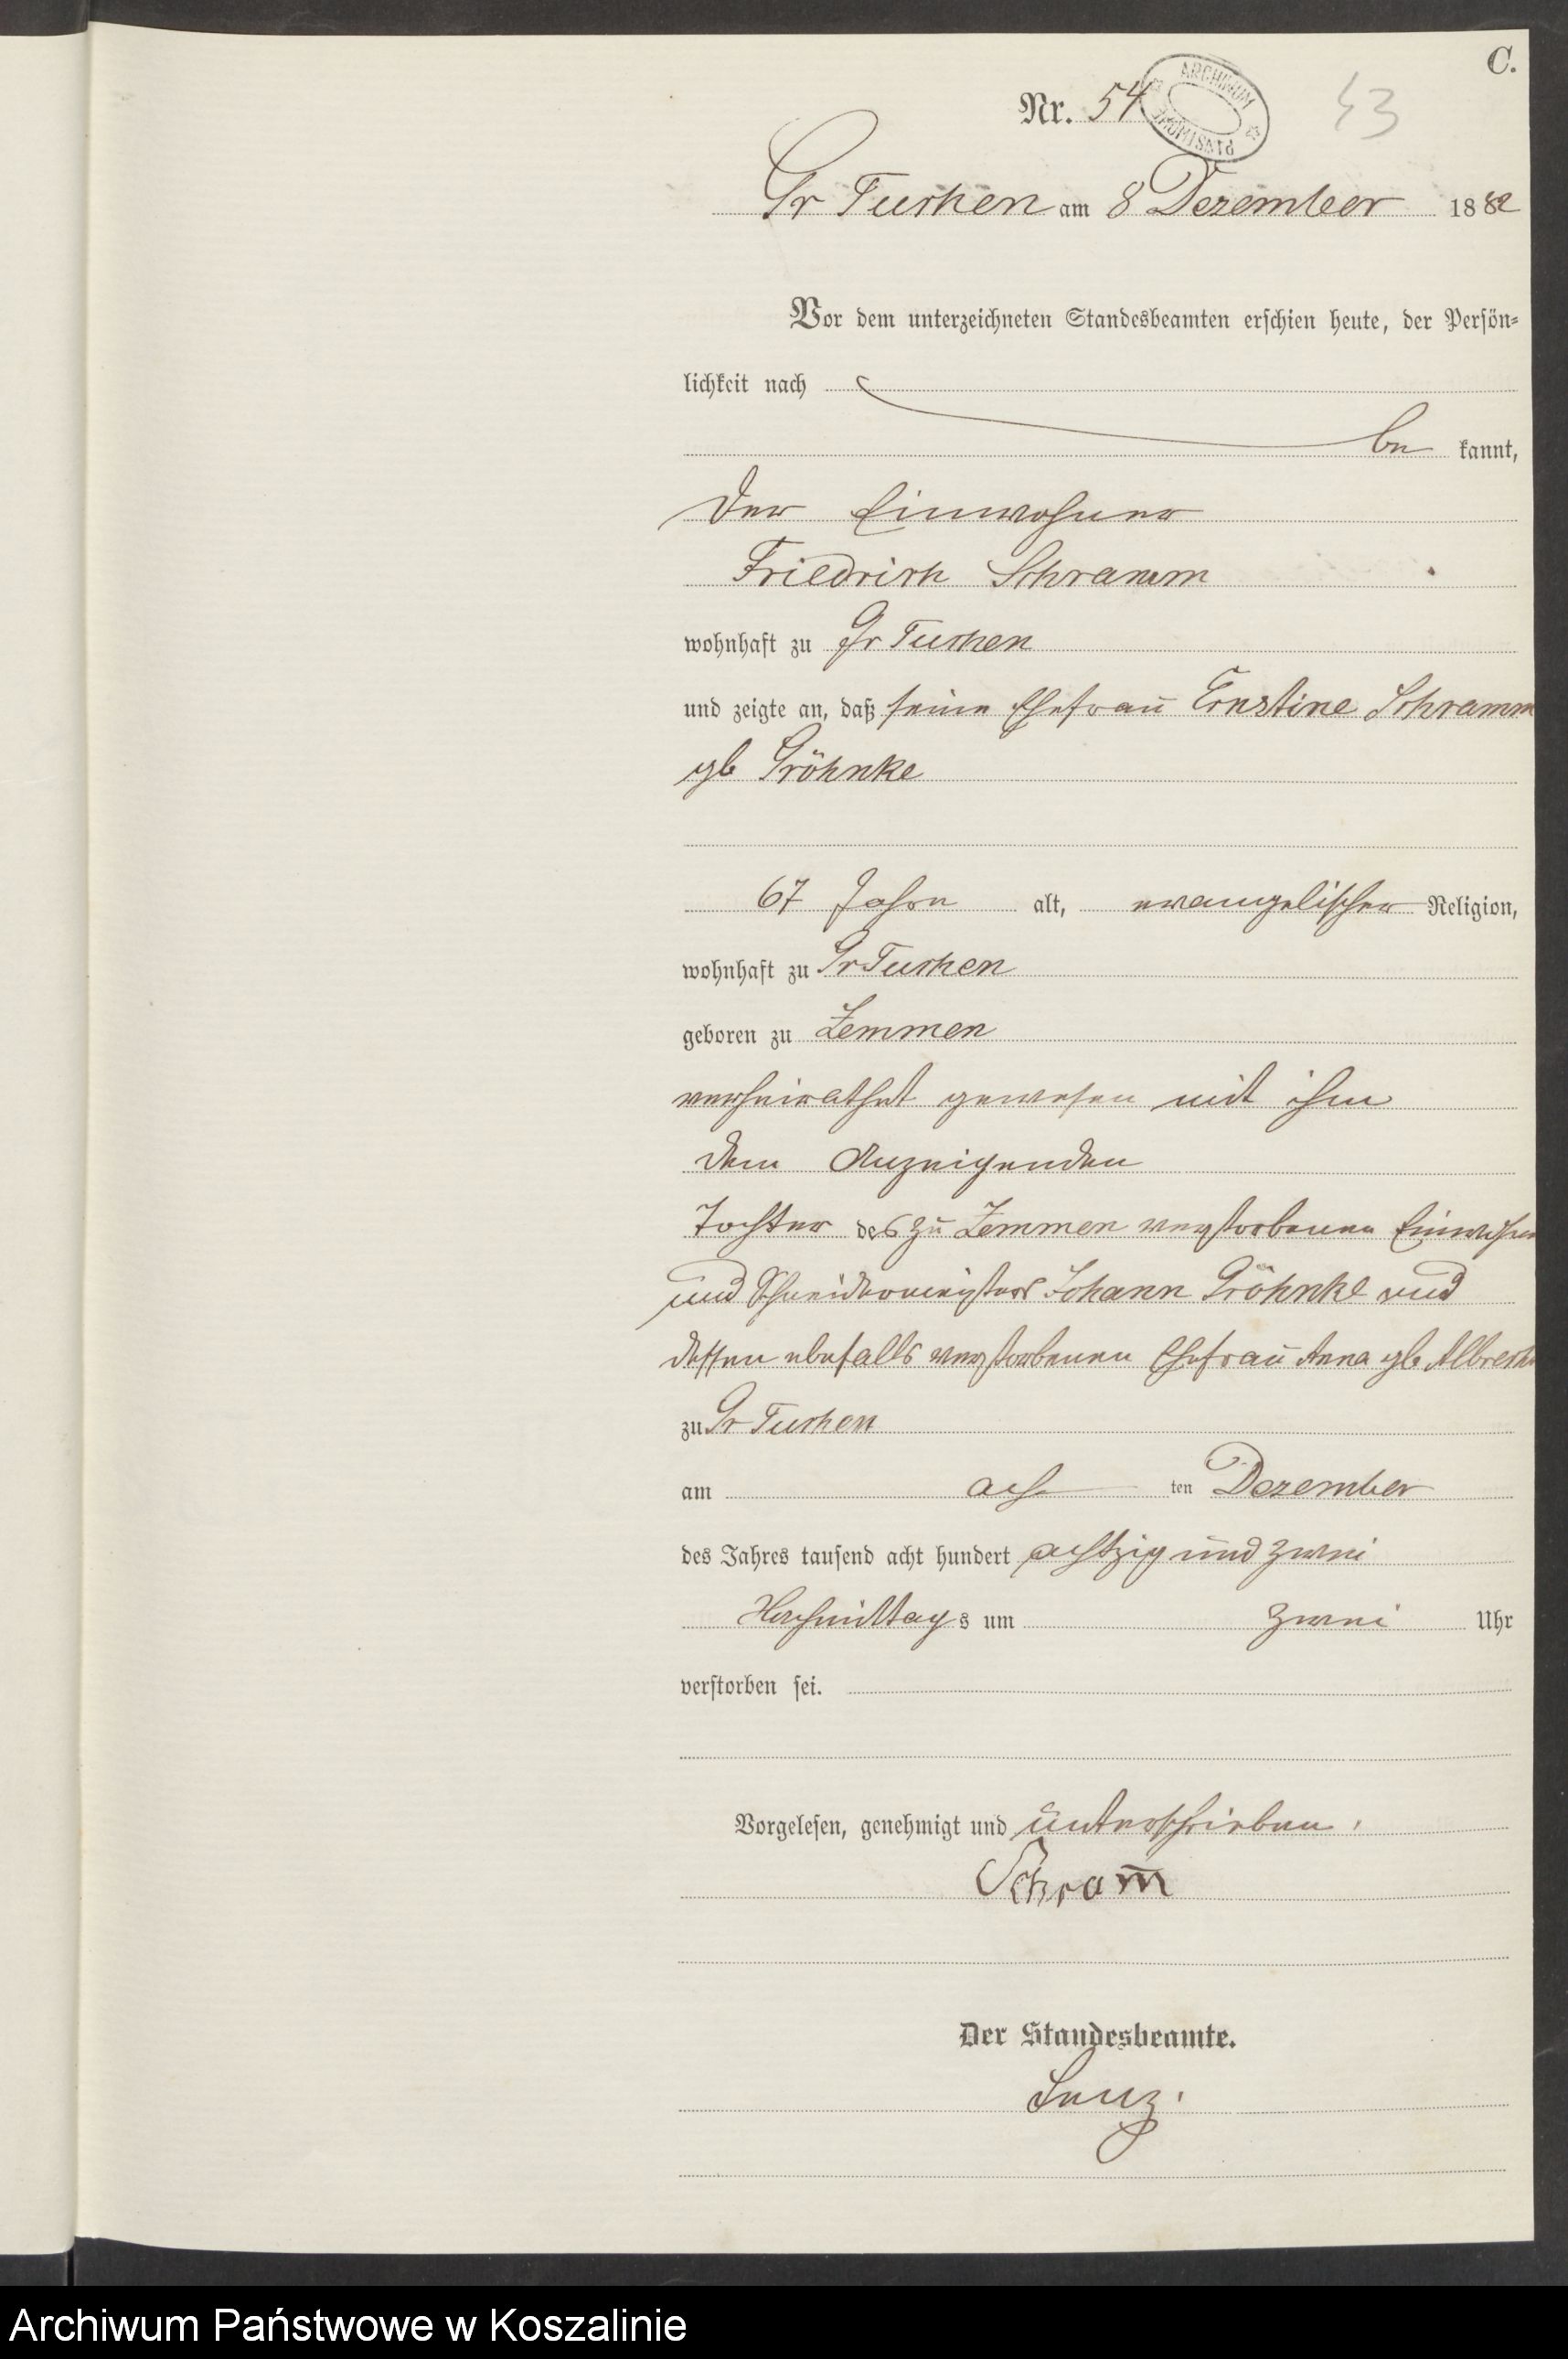 C.
Nr. 54
ARCHIWUM PAŃSTWOWE
43
Gr Tuchen am 8 Dezember 1882
Vor dem unterzeichneten Standesbeamten erschien heute, der Persön-
lichkeit nach
be kannt,
der Einwohner
Friedrich Schramm
wohnhaft zu Gr Tuchen
und zeigte an, daß seine Ehefrau Ernstine Schramm
gb Gröhnke
67 Jahre alt, evangelischer Religion,
wohnhaft zu Gr Tuchen
geboren zu Zemmen
verheirathet gewesen mit ihm
dem Anzeigenden
Tochter des zu Zemmen verstorbenen Einwohners
und Schneidermeisters Johann Gröhnke und
dessen ebefalls verstorbenen Ehefrau Anna gb Albrecht
zu Gr Tuchen
am ach ten Dezember
des Jahres tausend acht hundert achtzig und zwei
Nachmittag s um zwei Uhr
verstorben sei.
Vorgelesen, genehmigt und unterschrieben.
Schram̄
Der Standesbeamte.
Lenz.
Archiwum Państwowe w Koszalinie